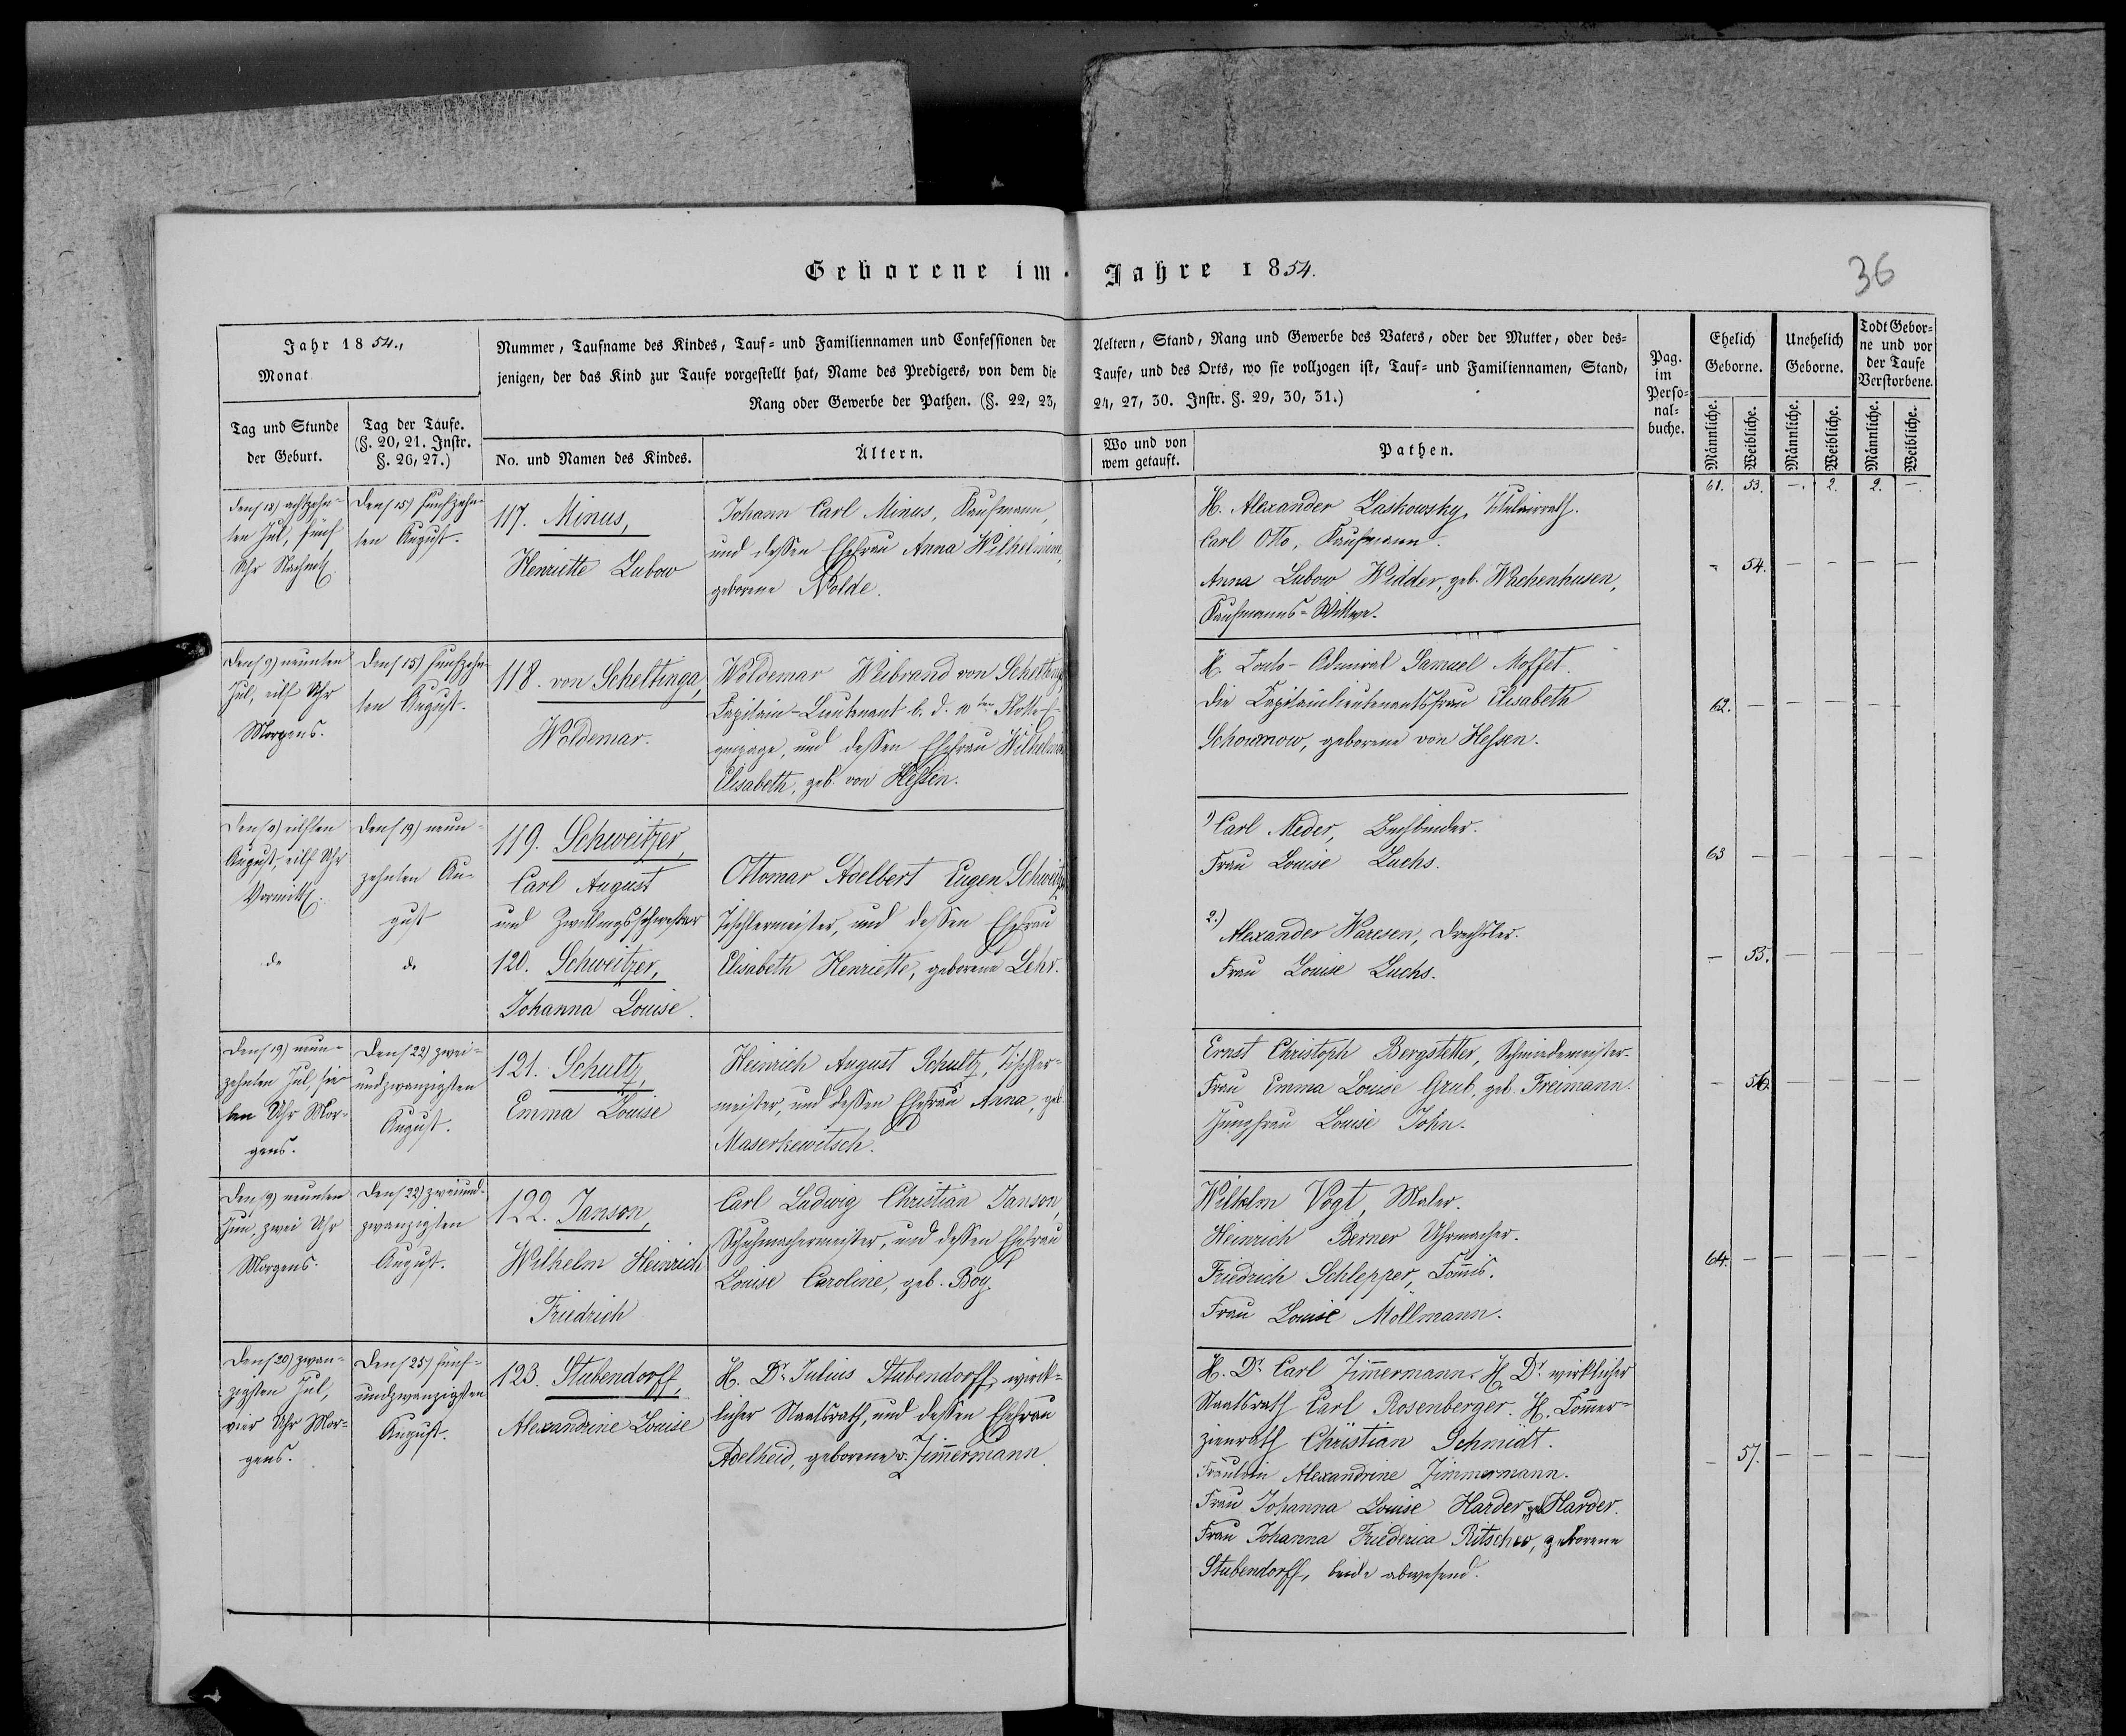 Geborene im Jahre 1854.
36
Jahr 1854.,
Monat
Tag und Stunde
der Geburt.
Tag der Taufe.
(§. 20, 21. Instr.
§. 26, 27.)
Nummer, Taufname des Kindes, Tauf- und Familiennamen und Confessionen der
jenigen, der das Kind zur Taufe vorgestellt hat, Name des Predigers, von dem die
Rang oder Gewerbe der Pathen. (§. 22, 23,
No. und Namen des Kindes.
Ältern.
Aeltern, Stand, Rang und Gewerbe des Vaters, oder der Mutter, oder des-
Taufe, und des Orts, wo sie vollzogen ist, Tauf- und Familiennamen, Stand,
24, 27, 30. Instr. §. 29, 30, 31.)
Wo und von
wem getauft.
Pathen.
Pag.
im
Perso-
nal-
buche.
Ehelich
Geborne.
Unehelich
Geborne.
Todt Gebor-
ne und vor
der Taufe
Verstorbene.
Männliche.
Weibliche.
Männliche.
Weibliche.
Männliche.
Weibliche.
61. 53. -. 2. 2. -.
Den 18) achtzehn-
ten Jul, fünf
Uhr Nachmitt.
Den 15) fünfzehn-
ten August.
117. Minus,
Henriette Lubow
Johann Carl Minus, Kaufmann,
und dessen Ehefrau Anna Wilhelmine,
geborene Nolde.
H. Alexander Laskowsky, Titulairrath.
Carl Otto, Kaufmann.
Anna Lubow Widder, geb. Wachenhusen,
Kaufmanns-Wittwe.
- 54. - - - -
Den 9) neunten
Jul, eilf Uhr
Morgens.
Den 15) fünfzehn-
ten August.
118. von Scheltinga,
Woldemar.
Woldemar Weibrand von Scheltinga,
Capitain-Lieutenant b. d. 10ten Flotte-
quipage, und dessen Ehefrau Wilhelmine
Elisabeth, geb. von Hessen.
H. Contr-Admiral Samuel Moffet.
Die Capitainlieutenantsfrau Elisabeth
Schoumow, geborene von Hessen.
62. - - - - -
Den eilften
August, eilf Uhr
Vormitt.
do
Den 19) neun-
zehnten Au-
gust
do
119. Schweitzer,
Carl August
und Zwillingsschwester
120. Schweitzer,
Johanna Louise.
Ottomar Adelbert Eugen Schweitzer
Tischlermeister, und dessen Ehefrau
Elisabeth Henriette, geborene Lehr.
1) Carl Meder, Buchbinder.
Frau Louise Luchs.
2.) Alexander Waresen, Drechsler.
Frau Louise Luchs.
63 - - - - -
- 55. - - - -
Den 19) neun-
zehnten Jul, sie-
ben Uhr Mor-
gens.
Den 22) zwei-
undzwanzigsten
August.
121. Schultz,
Emma Louise
Heinrich August Schultz, Tischler-
meister, und dessen Ehefrau Anna, geb.
Maserkewitsch.
Ernst Christoph Bergstetter, Schmiedemeister.
Frau Emma Louise Grub, geb. Freimann.
Jungfrau Louise John.
- 56. - - - -
Den 9) neunten
Jun, zwei Uhr
Morgens.
Den 22) zweiund-
zwanzigsten
August.
122. Janson,
Wilhelm Heinrich
Friedrich
Carl Ludwig Christian Janson,
Schuhmachermeister, und dessen Ehefrau
Louise Caroline, geb. Boy.
Wilhelm Vogt, Maler.
Heinrich Berner Uhrmacher.
Friedrich Schlepper, Commis.
Frau Louise Möllmann.
64. - - - - -
Den 20) zwan-
zigsten Jul,
vier Uhr Mor-
gens.
Den 25) fünf-
undzwanzigsten
August.
123. Stubendorff,
Alexandrine Louise
H. Dr. Julius Stubendorff, wirk-
licher Staatsrath, und dessen Ehefrau
Adelheid, geborene v. Zimmermann.
H. Dr. Carl Zimmermann. H. Dr. wirklicher
Staatsrath Carl Rosenberger. H. Commer-
zienrath Christian Schmidt.
Fräulein Alexandrine Zimmermann.
Frau Johanna Louise Harder, geb. Harder.
Frau Johanna Friederica Ritscher, geborene
Stubendorff, beide abwesend.
- 57. - - - -